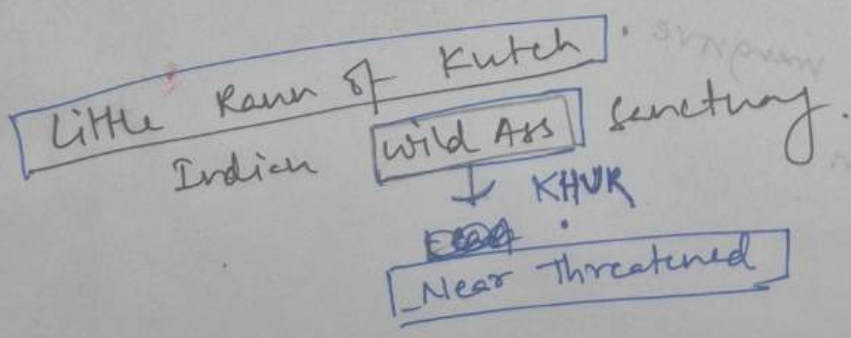 Little Rann of Kutch.
Indian Wild Ass Sanctuary.
↓ KHUR
Near Threatened